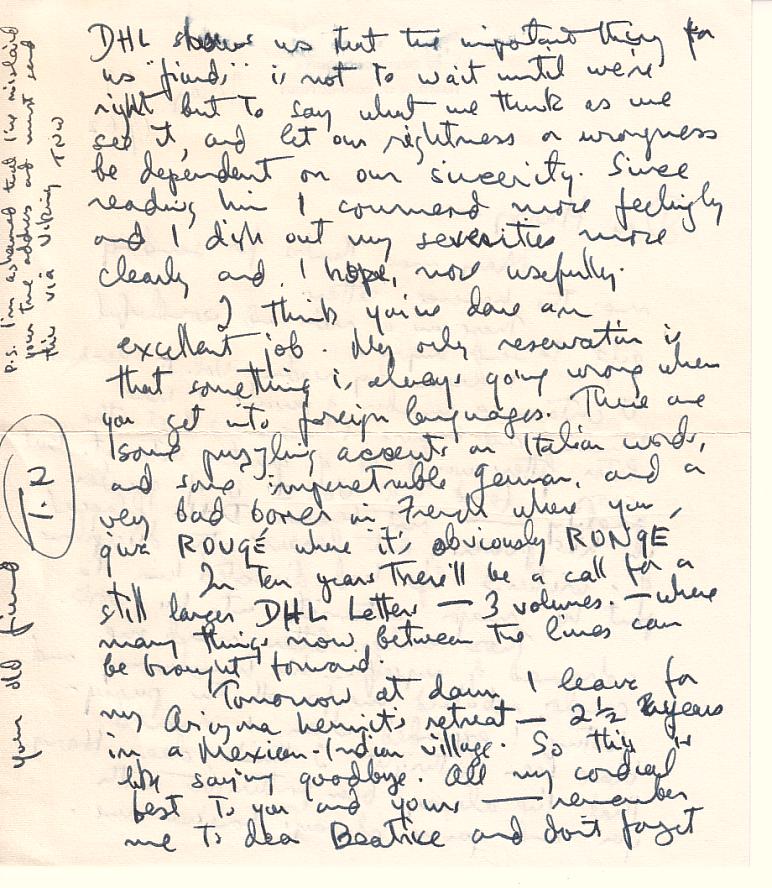 DHL shows us that the important thing for
us "fiends" is not to wait until we're
right but to say what we think as we
see it, and let our rightness or wrongness
be dependent on our sincerity. Since
reading him I commend more feelingly
and I dish out my severities more
clearly and, I hope, more usefully.
I think you've done an
excellent job. My only reservation is
that something is always going wrong when
you get into foreign languages. There are
some puzzling accents on Italian words,
and some impenetrable German, and a
very bad boner in French where you
give ROUGÉ where it's obviously RONGÉ
In ten years there'll be a call for a
still larger DHL Letters — 3 volumes. — where
many things now between the lines can
be brought forward.
Tomorrow at dawn I leave for
my Arizona hermit's retreat — 2 1/2 years
in a Mexican-Indian village. So this is
like saying goodbye. All my cordial
best to you and yours — remember
me to dear Beatrice and don't forget
your old friend
T. 2
P.S. I'm ashamed that I've mislaid
your true address and must send
this via Viking TNW